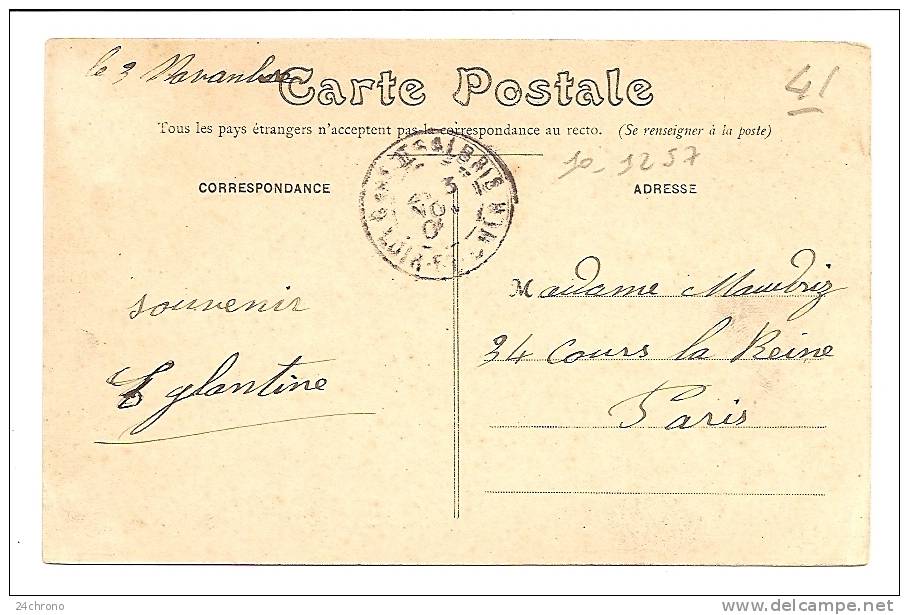 le 3 Novanbre
41
Carte Postale
Tous les pays étrangers n'acceptent pas la correspondance au recto. (Se renseigner à la poste)
10_3257
CORRESPONDANCE
ADRESSE
SALBRIS
LOIR-ET-CHER
souvenir
Eglantine
Madame Maudriz
34 Cours la Reine
Paris
24chrono
delcampe.net